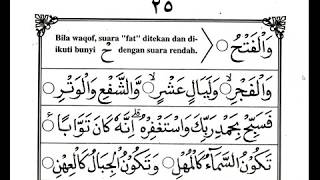 ٢٥
Bila waqof, suara "fat" ditekan dan di-
ikuti bunyi حْ dengan suara rendah.
وَالْفَتْحُ
وَالْفَجْرِ ○ وَلَيَالٍ عَشْرٍ ○ وَالشَّفْعِ وَالْوَتْرِ ○
فَسَبِّحْ بِحَمْدِ رَبِّكَ وَاسْتَغْفِرْهُ ۗ اِنَّهٗ كَانَ تَوَّابًا ○
تَكُوْنُ السَّمَاۤءُ كَالْمُهْلِ ○ وَتَكُوْنُ الْجِبَالُ كَالْعِهْنِ ○